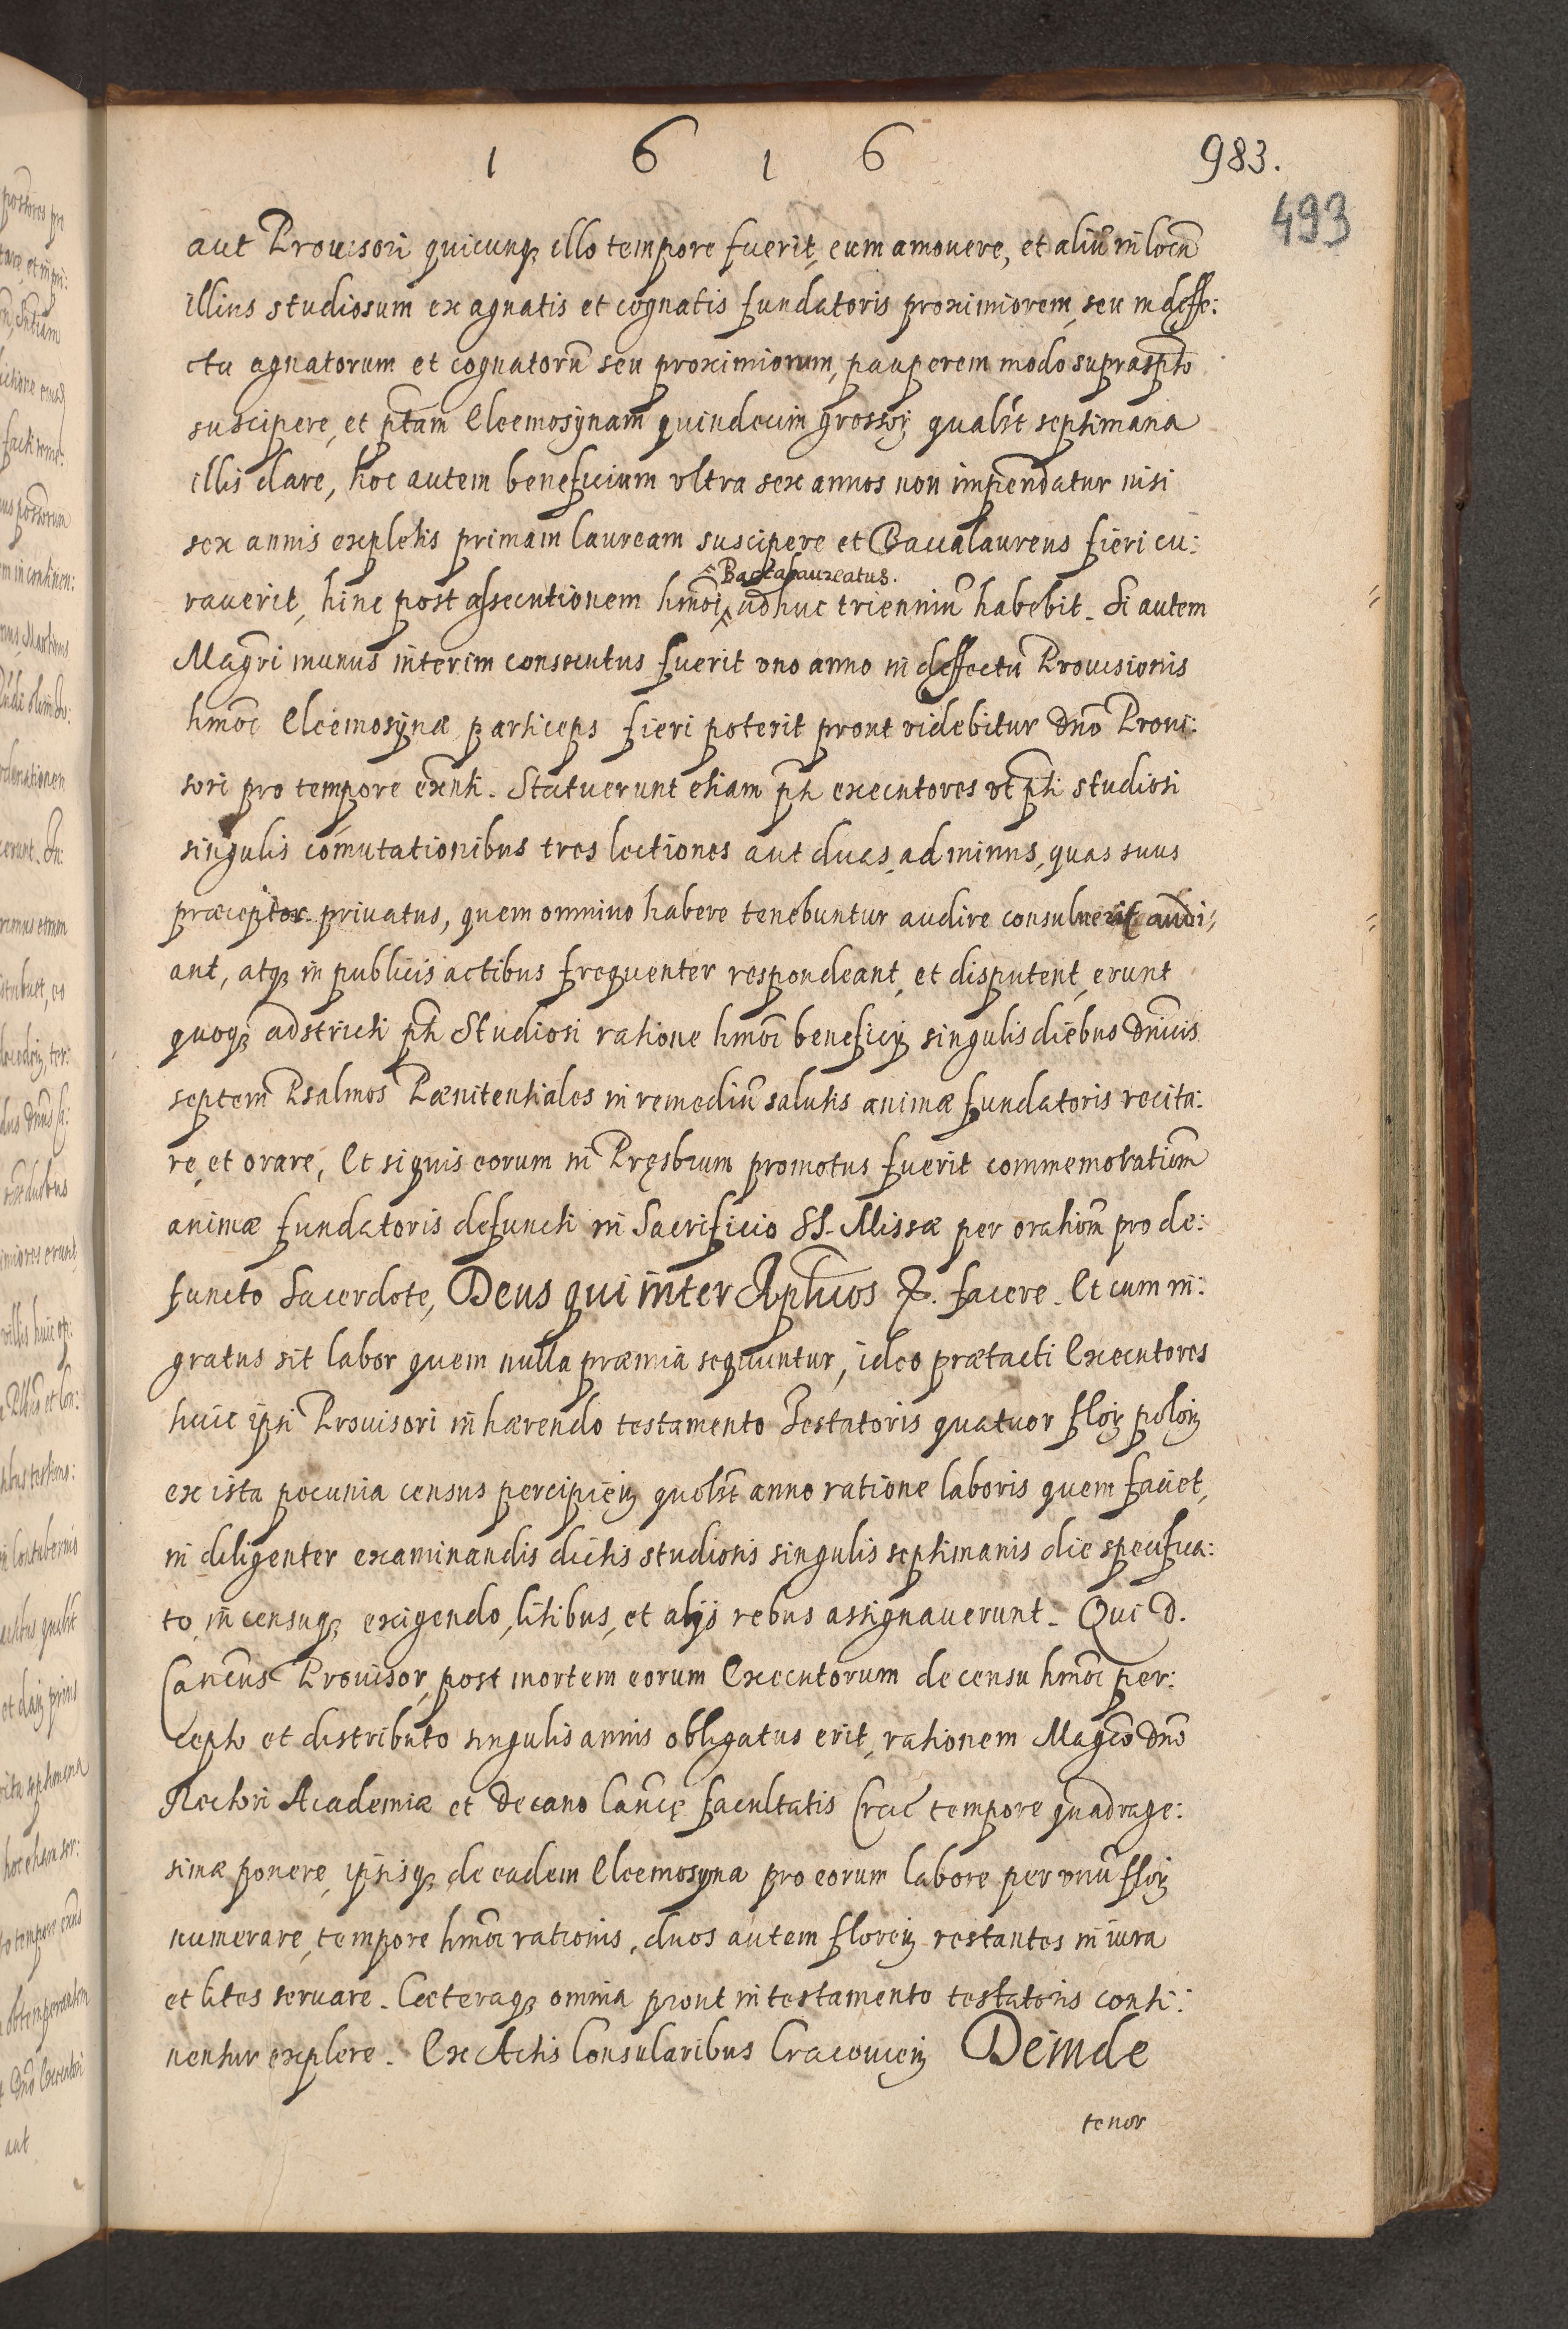 1 6 1 6 983.
493
aut Prouisori quicunq₃ illo tempore fuerit, eum amouere, et aliũ in locũ
illius studiosum ex agnatis et cognatis fundatoris proximiorem, seu in deffe:
ctu agnatorum et cognatorũ seu proximiorum, pauperem modo suprasp̃to
suscipere, et p̃tam Eleemosynam quindecim grossoꝝ qualib̃t septimana
illis dare, hoc autem beneficium vltra sex annos non impendatur nisi
sex annis expletis primam lauream suscipere et Baualaureus fieri cu:
Baccalaureatus.
rauerit, hinc post assecutionem hm̃oi adhuc trienniũ habebit. Si autem
Magr̃i munus interim consecutus fuerit vno anno in deffectu Prouisionis
hm̃oi Eleemosynæ particeps fieri poterit prout videbitur Dnõ Proui:
sori pro tempore ex̃nti. Statuerunt etiam p̃ti executores vt p̃ti studiosi
singulis com̃utationibus tres lectiones aut duas, ad minus, quas suus
præceptor priuatus, quem omnino habere tenebuntur audire consuluerit audi:
ant, atq₃ in publicis actibus frequenter respondeant, et disputent, erunt
quoq₃ adstricti p̃ti Studiosi ratione hm̃oi beneficij singulis diebus Dnicis
septem Psalmos Pænitentiales in remediũ salutis animæ fundatoris recita:
re, et orare, Et siquis eorum in Pręsbrum promotus fuerit commemorationm̃
animæ fundatoris defuncti in Sacrificio SS. Missæ per orationm̃ pro de:
functo Sacerdote, Deus qui inter Aplicos &. facere. Et cum in:
gratus sit labor quem nulla præmia sequuntur, ideo prætacti Executores
huic ipsi Prouisori inhærendo testamento Testatoris quatuor floꝝ poloꝝ
ex ista pecunia census percipieꝝ quolib̃t anno ratione laboris quem faciet,
in diligenter examinandis dictis studiosis singulis septimanis die specifica:
to, in censuq₃ exigendo, litibus, et alijs rebus assignauerunt. Qui D.
Cancus Prouisor, post mortem eorum Executorum de censu hm̃oi per:
cepto et distributo singulis annis obligatus erit, rationem Magco Dno
Rectori Academiæ et Decano Canc̃ę facultatis Crac̃ tempore quadrage:
simæ ponere, ipsisq₃ de eadem Eleemosyna pro eorum labore per vnũ floꝝ
numerare, tempore hm̃oi rationis, duos autem floreꝝ restantes in iura
et lites seruare. Cæteraq₃ omnia prout in testamento testatoris conti:
nentur explere. Ex Actis Consularibus Cracouieꝝ Deinde
tenor